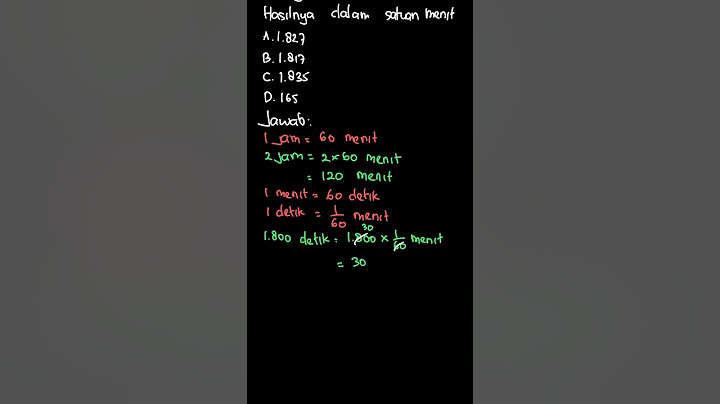 Hasilnya dalam satuan menit
A. 1.827
B. 1.817
C. 1.835
D. 165
Jawab:
1 jam = 60 menit
2 jam = 2×60 menit
= 120 menit
1 menit = 60 detik
1 detik = 1/60 menit
30
1.800 detik = 1.800 × 1/60 menit
= 30